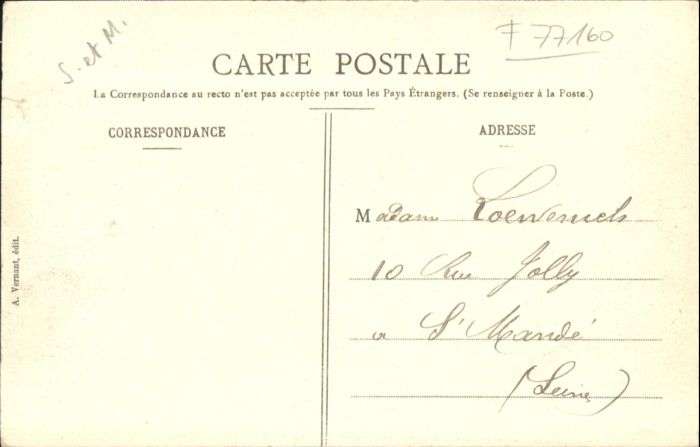 S. et M.
F 77160
CARTE POSTALE
La Correspondance au recto n'est pas acceptée par tous les Pays Étrangers. (Se renseigner à la Poste.)
CORRESPONDANCE
ADRESSE
A. Vernant, édit.
Madame
10 Rue Jolly
a St Mandé
(Seine)